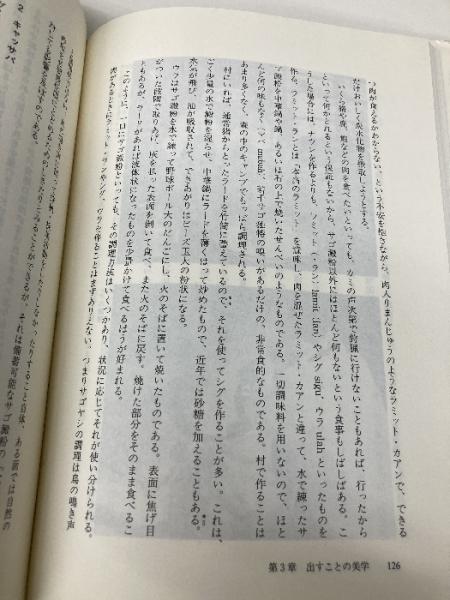 つ肉が食えるかわからない、という不安を抱きながら、肉入りまんじゅうのようなラミット・カアンで、できる
だけおいしく炭水化物を摂取しようとする。
いくら猪や鹿、猿などの肉を食べたいといっても、カミの声次第で狩猟に行けないこともあれば、行ったから
といって何かとれるという保証もないから、サゴ澱粉以外にはほとんど何もないという食事もしばしばある。こ
うした場合には、ナウシを作るよりも、ラミット(・ラン) lamit (lan) やシグ sigu、ウラ ulah といったものを
作る。ラミット・ランとは「本当のラミット」を意味し、肉を混ぜたラミット・カアンと違って、水で練ったサ
ゴ澱粉を中華鍋や鍋、あるいは石の上で焼いたせんべいのようなものである。一切調味料を用いないので、ほと
んど何の味もなく
サゴ独特の嗅いがあるだけの、非常食的なものである。村で作ることは
あまり多くなく、森の中のキャンプでもっぱら調理される。
村にいれば、通常猪からとったラードを竹筒に蓄えているので、それを使ってシグを作ることが多い。これは、
ごく少量の水で澱粉を湿らせ、中華鍋にラードを薄くはって炒めたもので、近年では砂糖を加えることもある。
水気が飛び、油が吸収されて、できあがりはビーズ玉大の粉状になる。
ウラはサゴ澱粉を水で練って野球ボール大のだんごにし、火のそばに置いて焼いたものである。表面に焦げ目
がついた段階で取りあげ、灰を払った表面を剥いて食べ、また火のそばに戻す。焼けた部分をそのまま食べるこ
ともあるが、ラードがあれば液体状になったものを少量かけて食べるほうが好まれる。
このように、一口にサゴ澱粉といっても、その調理方法はいくつかあり、状況に応じてそれが使い分けられる。
肉があるときにラミット・ランやシグ、ウラを作ることはまずありえない。つまりサゴヤシの調理は鳥の鳴き声
第3章 出すことの美学 126
2 キャッサバ